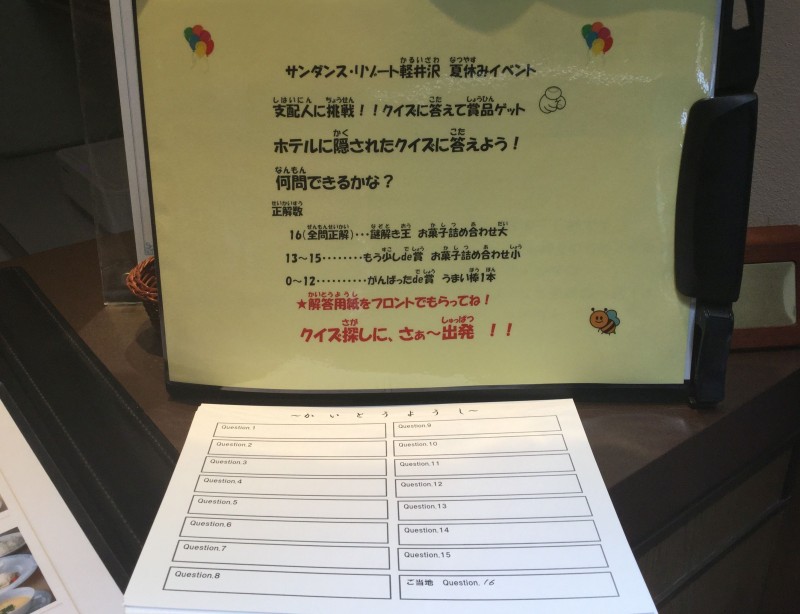 サンダンス・リゾート軽井沢 夏休みイベント
支配人に挑戦！！クイズに答えて賞品ゲット
ホテルに隠されたクイズに答えよう！
何問できるかな？
正解数
16(全問正解)・・・謎解き王 お菓子詰め合わせ大
13～15・・・・・・・・もう少しde賞 お菓子詰め合わせ小
0～12・・・・・・・・・・がんばったde賞 うまい棒1本
★解答用紙をフロントでもらってね！
クイズ探しに、さぁ～出発 ！！
～かいとうようし～
Question.1
Question.2
Question.3
Question.4
Question.5
Question.6
Question.7
Question.8
Question.9
Question.10
Question.11
Question.12
Question.13
Question.14
Question.15
ご当地 Question.16